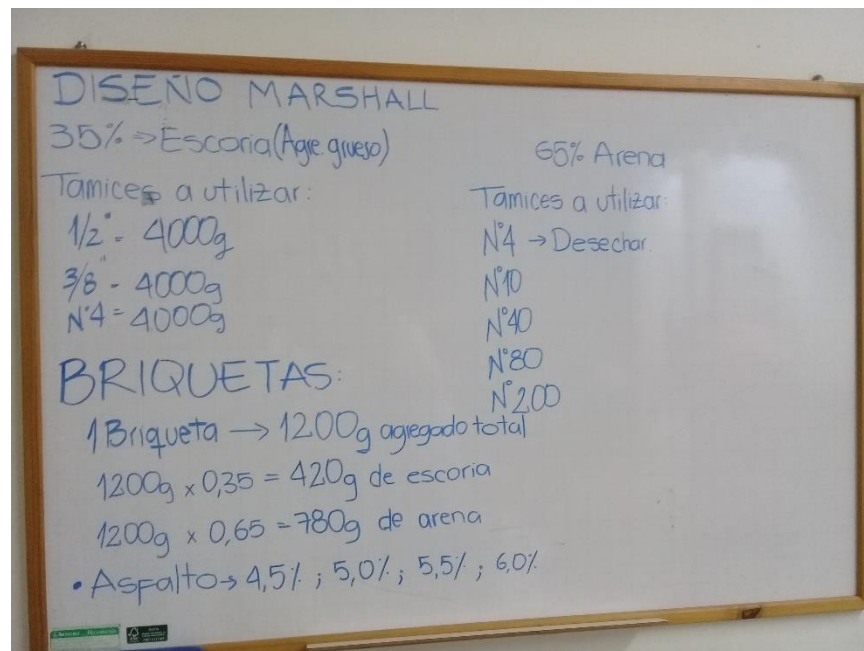 DISEÑO MARSHALL
35% => Escoria (Agre. grueso)
Tamices a utilizar:
1/2" - 4000g
3/8" - 4000g
N°4 = 4000g
65% Arena
Tamices a utilizar:
N°4 → Desechar.
N°10
N°40
N°80
N°200
BRIQUETAS:
1 Briqueta → 1200g agregado total
1200g x 0,35 = 420g de escoria
1200g x 0,65 = 780g de arena
• Asfalto → 4,5% ; 5,0% ; 5,5% ; 6,0%